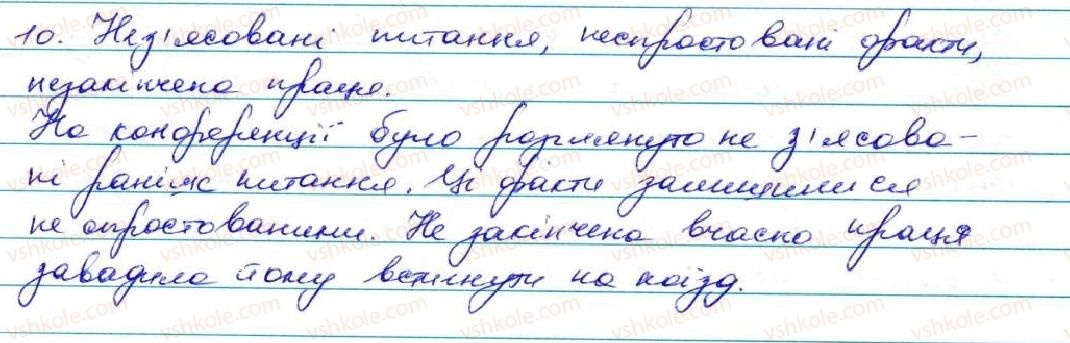 10. Нез'ясовані питання, неспростовані факти,
незакінчена праця.
На конференції було розглянуто не з'ясова-
ні раніше питання. Ці факти залишилися
не спростованими. Не закінчена вчасно праця
завадила йому встигнути на поїзд.